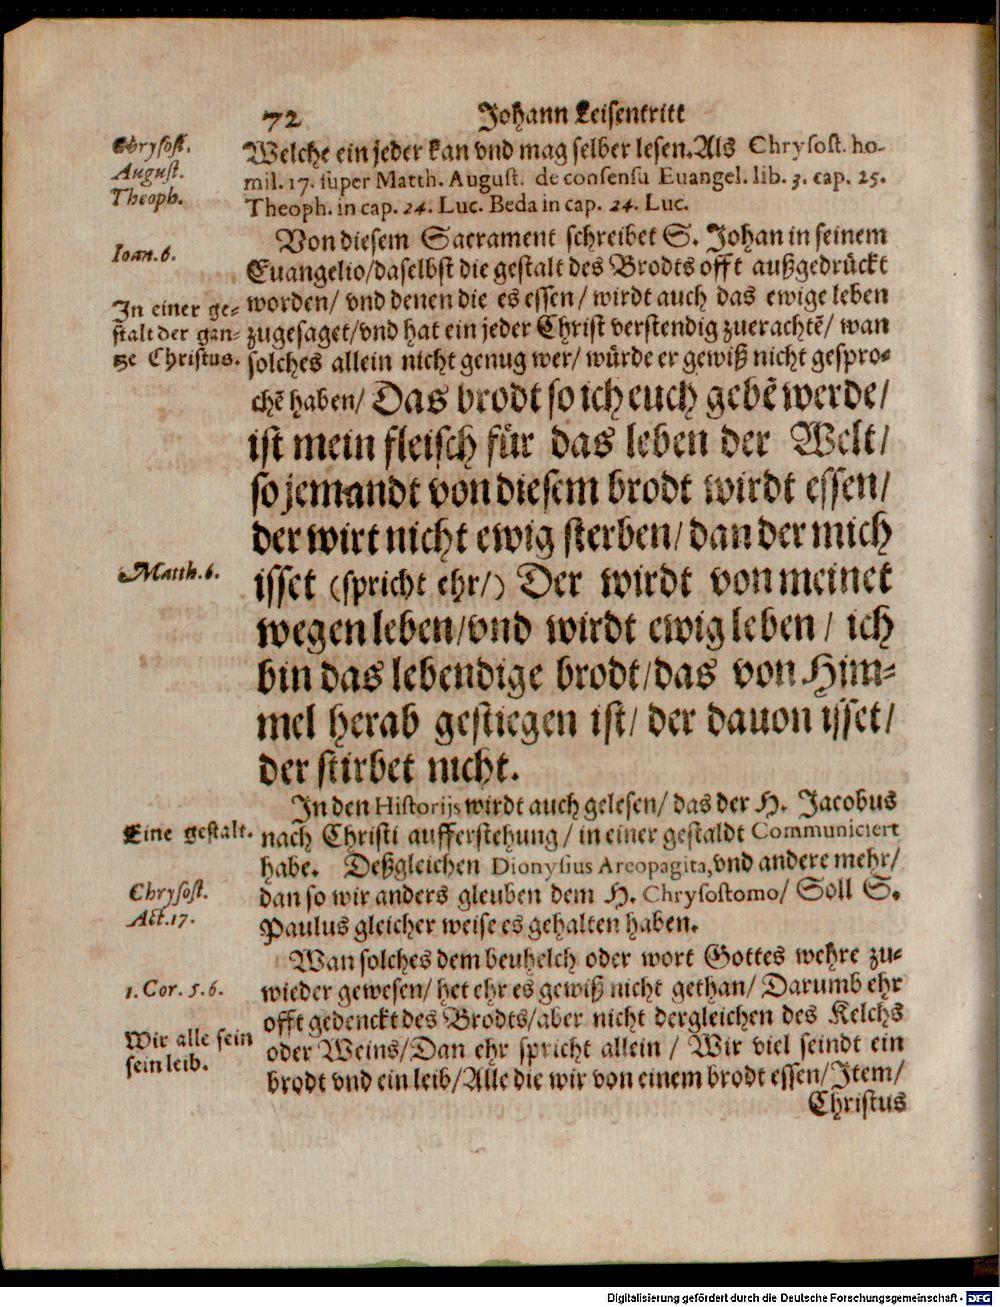 72 Johann Leisentritt
Chrysost.
August.
Theoph.
Welche ein jeder kan vnd mag selber lesen. Als Chrysost. ho-
mil. 17. super Matth. August. de consensu Euangel. lib. 3. cap. 25.
Theoph. in cap. 24. Luc. Beda in cap. 24. Luc.
Ioan. 6.
In einer ge-
stalt der gan-
tze Christus.
Von diesem Sacrament schreibet S. Johan in seinem
Euangelio/daselbst die gestalt des Brodts offt außgedrückt
worden/ vnd denen die es essen/ wirdt auch das ewige leben
zugesaget/vnd hat ein jeder Christ verstendig zuerachtẽ/ wan
solches allein nicht genug wer/ würde er gewiß nicht gespro-
chẽ haben/ Das brodt so ich euch gebẽ werde/
ist mein fleisch für das leben der Welt/
so jemandt von diesem brodt wirdt essen/
der wirt nicht ewig sterben/ dan der mich
Matth. 6.
isset (spricht ehr/) Der wirdt von meinet
wegen leben/vnd wirdt ewig leben/ ich
bin das lebendige brodt/das von Him-
mel herab gestiegen ist/ der dauon isset/
der stirbet nicht.
In den Historijs wirdt auch gelesen/ das der H. Jacobus
Eine gestalt.
nach Christi aufferstehung/ in einer gestaldt Communiciert
habe. Deßgleichen Dionysius Areopagita, vnd andere mehr/
Chrysost.
Act. 17.
dan so wir anders gleuben dem H. Chrysostomo/ Soll S.
Paulus gleicher weise es gehalten haben.
Wan solches dem beuhelch oder wort Gottes wehre zu-
1. Cor. 5. 6.
wieder gewesen/ het ehr es gewiß nicht gethan/ Darumb ehr
offt gedenckt des Brodts/aber nicht dergleichen des Kelchs
Wir alle sein
sein leib.
oder Weins/Dan ehr spricht allein/ Wir viel seindt ein
brodt vnd ein leib/Alle die wir von einem brodt essen/Item/
Christus
Digitalisierung gefördert durch die Deutsche Forschungsgemeinschaft - DFG